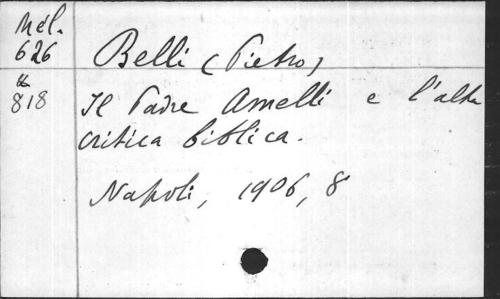 Mél.
626
&
818
Belli (Pietro)
Il Padre Amelli e l'alta
critica biblica.
Napoli, 1906, 8